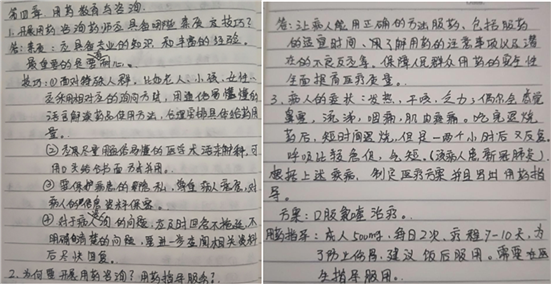 第四章、用药教育与咨询
1.开展用药咨询药师应具备哪些素质及技巧?
答:素质:应具备专业的知识和丰富的经验。
最重要的是要耐心。
技巧:①面对特殊人群,比如老人、小孩、女性
应采用相对应的询问方法,用通俗易懂懂的
语言解读药品使用方法,合理安排具体给药用
量。
②应尽量用通俗易懂的医学术语来解释,可
用口头结合书面方式并用。
③要保护病患的隐私,尊重病人意愿,对
病人的信息资料保密。
④对于病人询问的问题,应及时回答不拖延,不
明确清楚的问题,要进一步查阅相关资料
后尽快回复。
2、为何要开展用药咨询?用药指导服务?
答:让病人能用正确的方法服药,包括服药
的适宜时间、用了解用药的注意事项以及潜
在的不良反应等。保障人民群众用药的安全性
全面提高医疗质量。
3、病人的症状:发热,干咳,乏力,偶尔会感觉
鼻塞,流涕,咽痛,肌肉酸痛。吃完退烧
药后,短时间退烧,但是一两个小时后又反复。
呼吸比较急促,气短。(该病人患新冠肺炎)
根据上述症病,制定医疗方案并且写出用药指
导。
方案:口服氨 治疗。
用药指导:成人500mg,每日2次,疗程7-10天,为
了防止伤胃,建议饭后服用。需要在医
生指导服用。